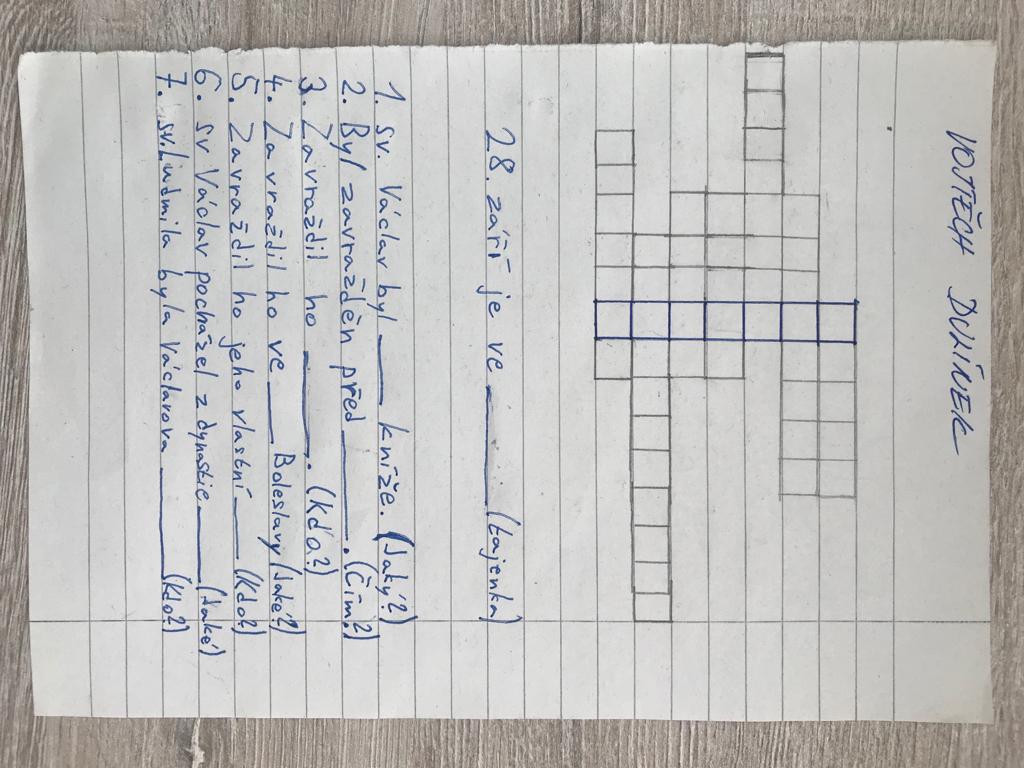 VOJTĚCH DVIÍNEK
28. září je ve ______ (tajenka)
1. sv. Václav byl ____ kníže. (Jaký?)
2. Byl zavražděn před ____. (Čím?)
3. Zavraždil ho ______. (Kdo?)
4. Zavraždil ho ve ____ Boleslavy (Jaké?)
5. Zavraždil ho jeho vlastní ____ (Kdo?)
6. sv Václav pocházel z dynastie ____ (Jaké)
7. sv. Ludmila byla Václavova ____ (Kdo?)